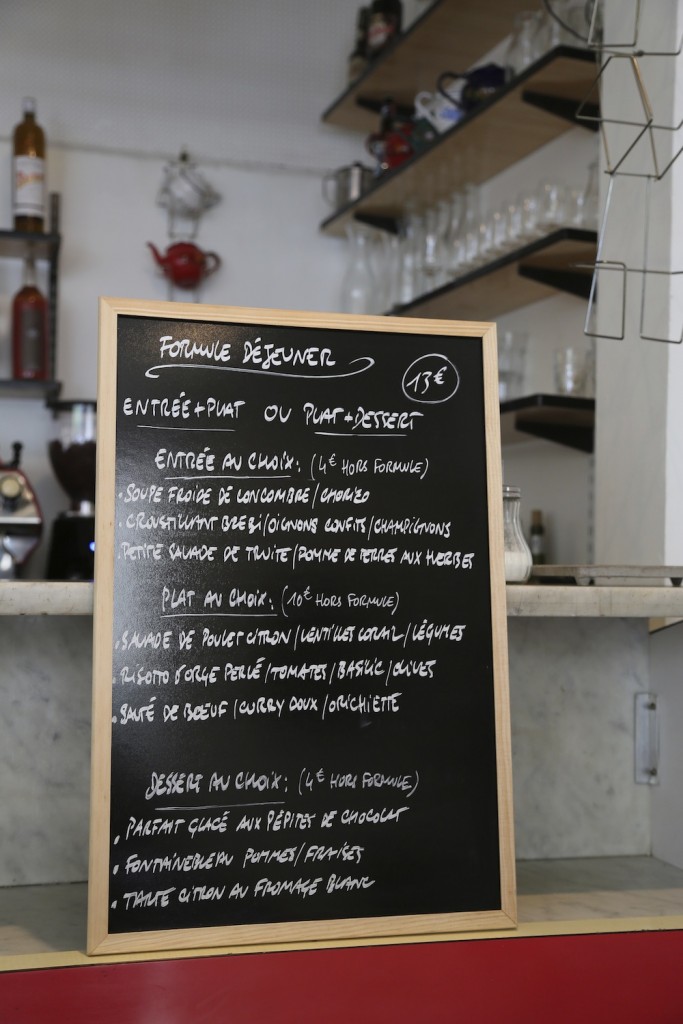 FORMULE DÉJEUNER
13€
ENTRÉE+PLAT OU PLAT+DESSERT
ENTRÉE AU CHOIX: (4€ HORS FORMULE)
• SOUPE FROIDE DE CONCOMBRE/CHORIZO
• CROUSTILLANT BREBI/OIGNONS CONFITS/CHAMPIGNONS
• PETITE SALADE DE TRUITE/POMME DE TERRES AUX HERBES
PLAT AU CHOIX: (10€ HORS FORMULE)
• SALADE DE POULET CITRON/LENTILLES CORAIL/LÉGUMES
• RISOTTO D'ORGE PERLÉ/TOMATES/BASILIC/OLIVES
• SAUTÉ DE BŒUF/CURRY DOUX/ORICHIETTE
DESSERT AU CHOIX: (4€ HORS FORMULE)
• PARFAIT GLACÉ AUX PÉPITES DE CHOCOLAT
• FONTAINEBLEAU POMMES/FRAISES
• TARTE CITRON AU FROMAGE BLANC